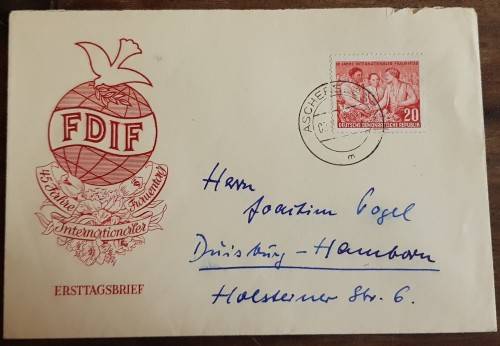 FDIF
45 Jahre
Internationaler
Frauentag
ERSTTAGSBRIEF
INTERNATIONALER FRAUENTAG
20
DEUTSCHE DEMOKRATISCHE REPUBLIK
ASCHERSLEBEN
m
Herrn
Joachim Vogel
Duisburg - Hamborn
Holsteiner Str. 6.